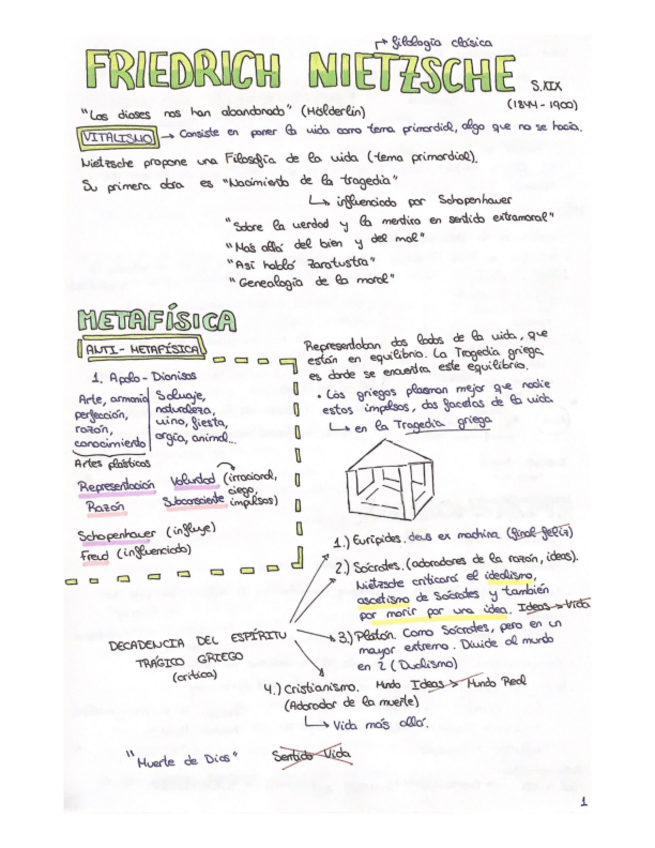 filología clásica
FRIEDRICH NIETZSCHE S.XIX
(1844-1900)
"Los dioses nos han abandonado" (Hölderlin)
VITALISMO → Consiste en poner la vida como tema primordial, algo que no se hacía.
Nietzsche propone una Filosofía de la vida (tema primordial).
Su primera obra es "Nacimiento de la tragedia"
↳ influenciado por Schopenhauer
"Sobre la verdad y la mentira en sentido extramoral"
"Más allá del bien y del mal"
"Así habló Zaratustra"
"Genealogía de la moral"
METAFÍSICA
ANTI-METAFÍSICA
1. Apolo - Dionisos
Arte, armonía
perfección,
razón,
conocimiento
Salvaje,
naturaleza,
vino, fiesta,
orgía, animal...
Artes plásticas
Representación
Razón
Voluntad (irracional,
ciego,
impulsos)
Subconsciente
Schopenhauer (influye)
Freud (influenciado)
Representaban dos lados de la vida, que
están en equilibrio. La Tragedia griega
es donde se encuentra este equilibrio.
• Los griegos plasman mejor que nadie
estos impulsos, dos facetas de la vida
↳ en la Tragedia griega
DECADENCIA DEL ESPÍRITU
TRÁGICO GRIEGO
(crítica)
1.) Eurípides. deus ex machina (final feliz)
2.) Sócrates. (adoradores de la razón, ideas).
Nietzsche criticará el idealismo,
ascetismo de Sócrates y también
por morir por una idea. Ideas > Vida
3.) Platón. Como Sócrates, pero en un
mayor extremo. Divide al mundo
en 2 (Dualismo)
4.) Cristianismo. Mundo Ideas > Mundo Real
(Adorador de la muerte)
↳ Vida más allá.
"Muerte de Dios" Sentido Vida
1